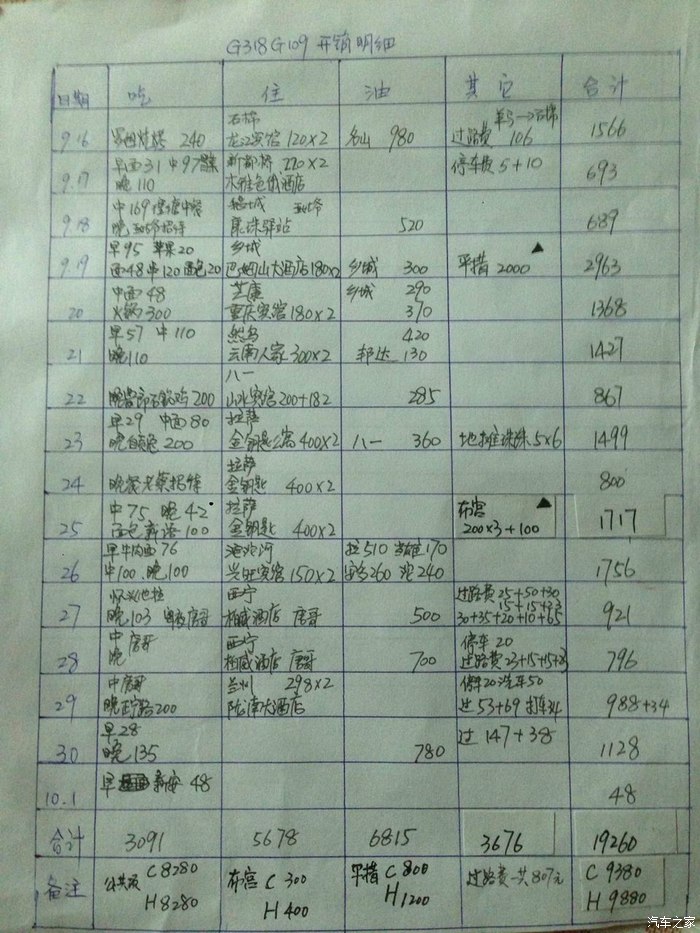 G318 G109 开销明细
日期 吃 住 油 其它 合计
9.16 240 石棉 龙江宾馆 120×2 名山 980 过路费 106 1566
9.17 早面31 中97 晚110 新都桥 220×2 木雅色俄酒店 停车费 5+10 693
9.18 中169 晚 稻城 驿站 520 689
9.19 早95 苹果20 面48 中120 面包20 乡城 巴姆山大酒店180×2 乡城 300 平措 2000 2963
20 中面48 火锅300 芒康 重庆宾馆180×2 乡城 290 370 1368
21 早57 中110 晚110 然乌 云南人家300×2 420 邦达 130 1427
22 晚 石锅鸡200 八一 山水宾馆200+182 285 867
23 早29 中面80 晚 200 拉萨 金钥匙公寓400×2 八一 360 地摊珠珠5×6 1499
24 晚餐老蔡招待 拉萨 金钥匙 400×2 800
25 中75 晚42 面包 100 拉萨 金钥匙 400×2 布宫 200×3+100 1717
26 早牛肉面76 中100 晚100 沱沱河 兴旺宾馆150×2 拉510 当雄170 260 沱240 1756
27 晚103 唐哥 西宁 柏威酒店 唐哥 500 过路费25+50+30 30+35+20+10+65 921
28 中唐哥 晚 西宁 柏威酒店 唐哥 700 停车20 过路费23+15+15+23 796
29 中唐哥 晚 200 兰州 298×2 陇南大酒店 停车20 汽车50 过53+69 打车34 988+34
30 早28 晚135 780 过147+38 1128
10.1 早 新安 48 48
合计 3091 5678 6815 3676 19260
备注 C8280 H8280 布宫 C300 H400 平措 C800 H1200 过路费一共807元 C 9380 H 9880
汽车之家